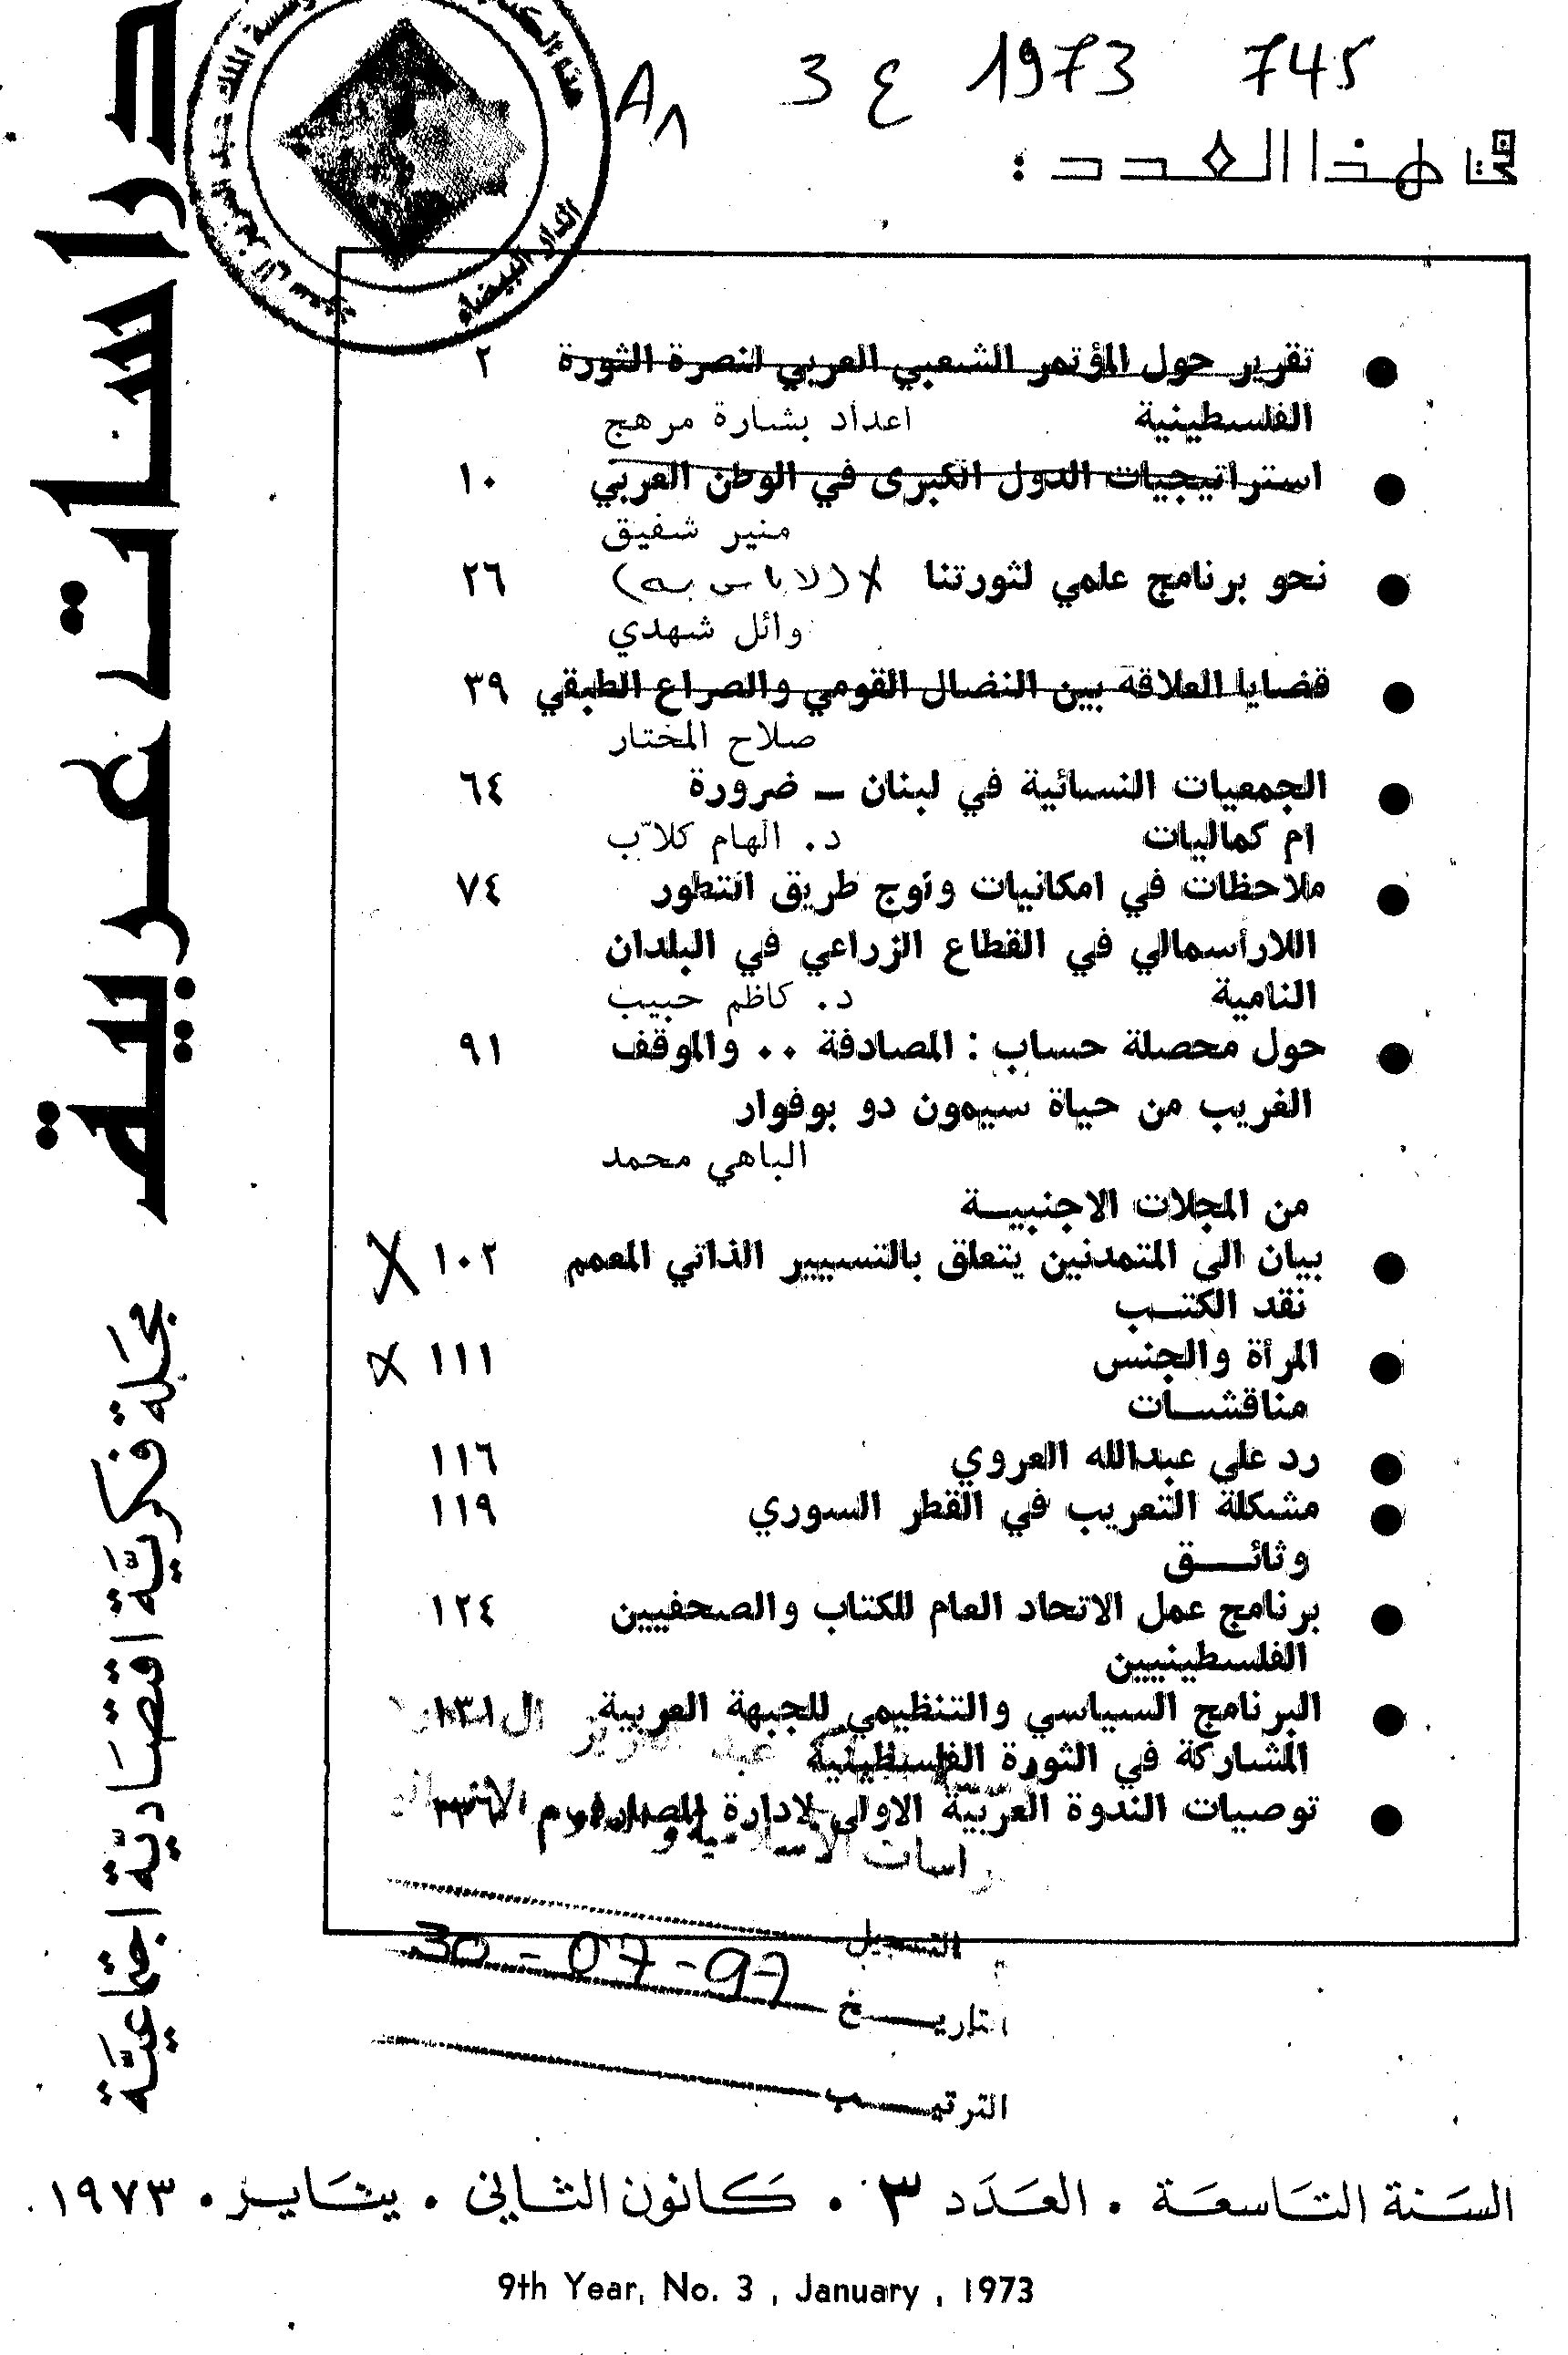 745 1973 ع 3
A٨
في هذا العدد :
دراسات عربية
مجلة فكرية اقتصادية اجتماعية
الملك عبد العزيز آل سعود
الدار البيضاء
● تقرير حول المؤتمر الشعبي العربي لنصرة الثورة ٢
الفلسطينية اعداد بشارة مرهج
● استراتيجيات الدول الكبرى في الوطن العربي ١٠
منير شفيق
● نحو برنامج علمي لثورتنا X (لا باس به) ٢٦
وائل شهدي
● قضايا العلاقة بين النضال القومي والصراع الطبقي ٣٩
صلاح المختار
● الجمعيات النسائية في لبنان ـ ضرورة ٦٤
ام كماليات د. الهام كلاّب
● ملاحظات في امكانيات ونوج طريق التطور ٧٤
اللارأسمالي في القطاع الزراعي في البلدان
النامية د. كاظم حبيب
● حول محصلة حساب : المصادفة .. والموقف ٩١
الغريب من حياة سيمون دو بوفوار
الباهي محمد
من المجلات الاجنبيــة
● بيان الى المتمدنين يتعلق بالتسيير الذاتي المعمم ١٠٢ X
نقد الكتــب
● المرأة والجنس ١١١ X
مناقشــات
● رد على عبدالله العروي ١١٦
● مشكلة التعريب في القطر السوري ١١٩
وثائــــق
● برنامج عمل الاتحاد العام للكتاب والصحفيين ١٢٤
الفلسطينيين
● البرنامج السياسي والتنظيمي للجبهة العربية ١٣١
المشاركة في الثورة الفلسطينية
● توصيات الندوة العربية الاولى لادارة المصارف ١٣٦
التسجيل
التاريـــخ 30-07-97
الترتيـــب
السنة التاسعة . العدد ٣ . كانون الثاني . يناير . ١٩٧٣ .
9th Year, No. 3 , January , 1973